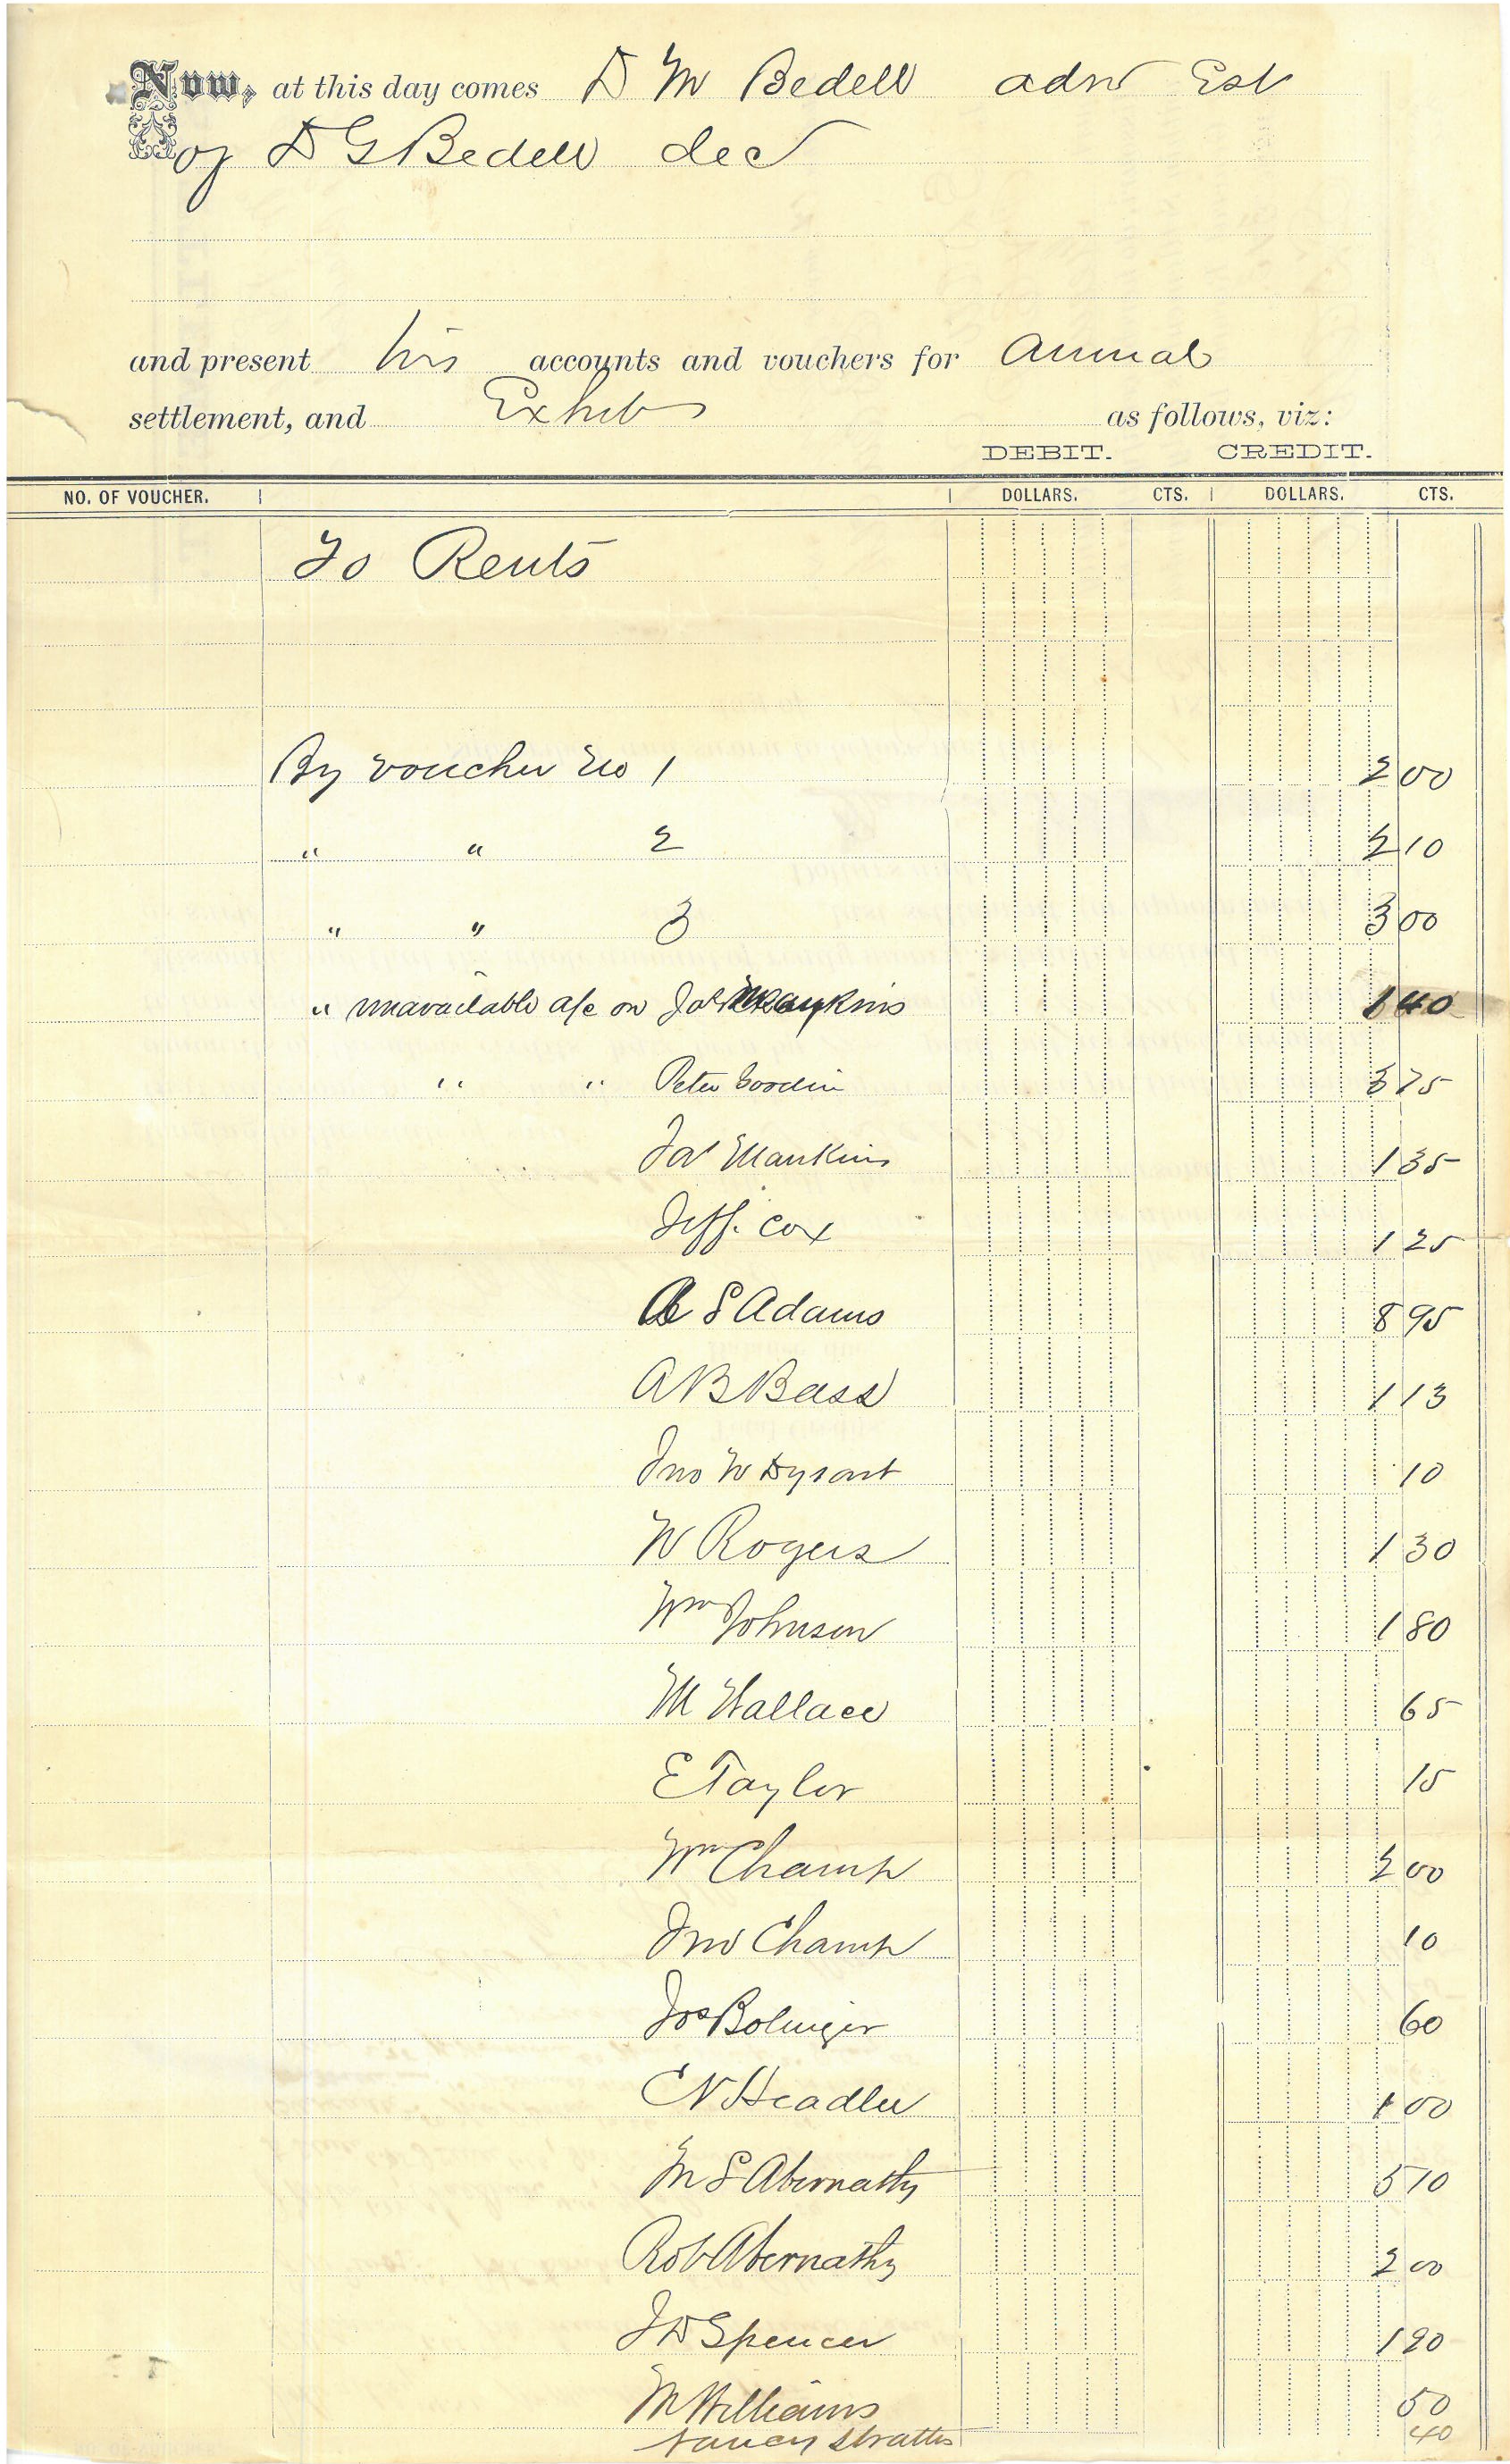 Now, at this day comes D M Bedell adm Est
of D G Bedell dec
and present his accounts and vouchers for Annual
settlement, and Exhibits as follows, viz:
DEBIT. CREDIT.
NO. OF VOUCHER. DOLLARS. CTS. DOLLARS. CTS.
To Rents
By voucher No 1 2 00
" " 2 2 10
" " 3 3 00
" unavailable a/c on Jas Mankins 1 40
" " Peter Goodin 3 75
Jas Mankins 1 35
Jeff. Cox 1 25
S Adams 8 95
A B Bass 1 13
Jno W Dysart 10
W Rogers 1 30
Wm Johnson 1 80
M Wallace 65
E Taylor 15
Wm Champ 2 00
Jno Champ 10
Jos Bolinger 60
C N Headlee 1 00
M S Abernathy 5 10
Rob Abernathy 2 00
J D Spencer 1 90
M Williams 50
Nancy Stratton 40